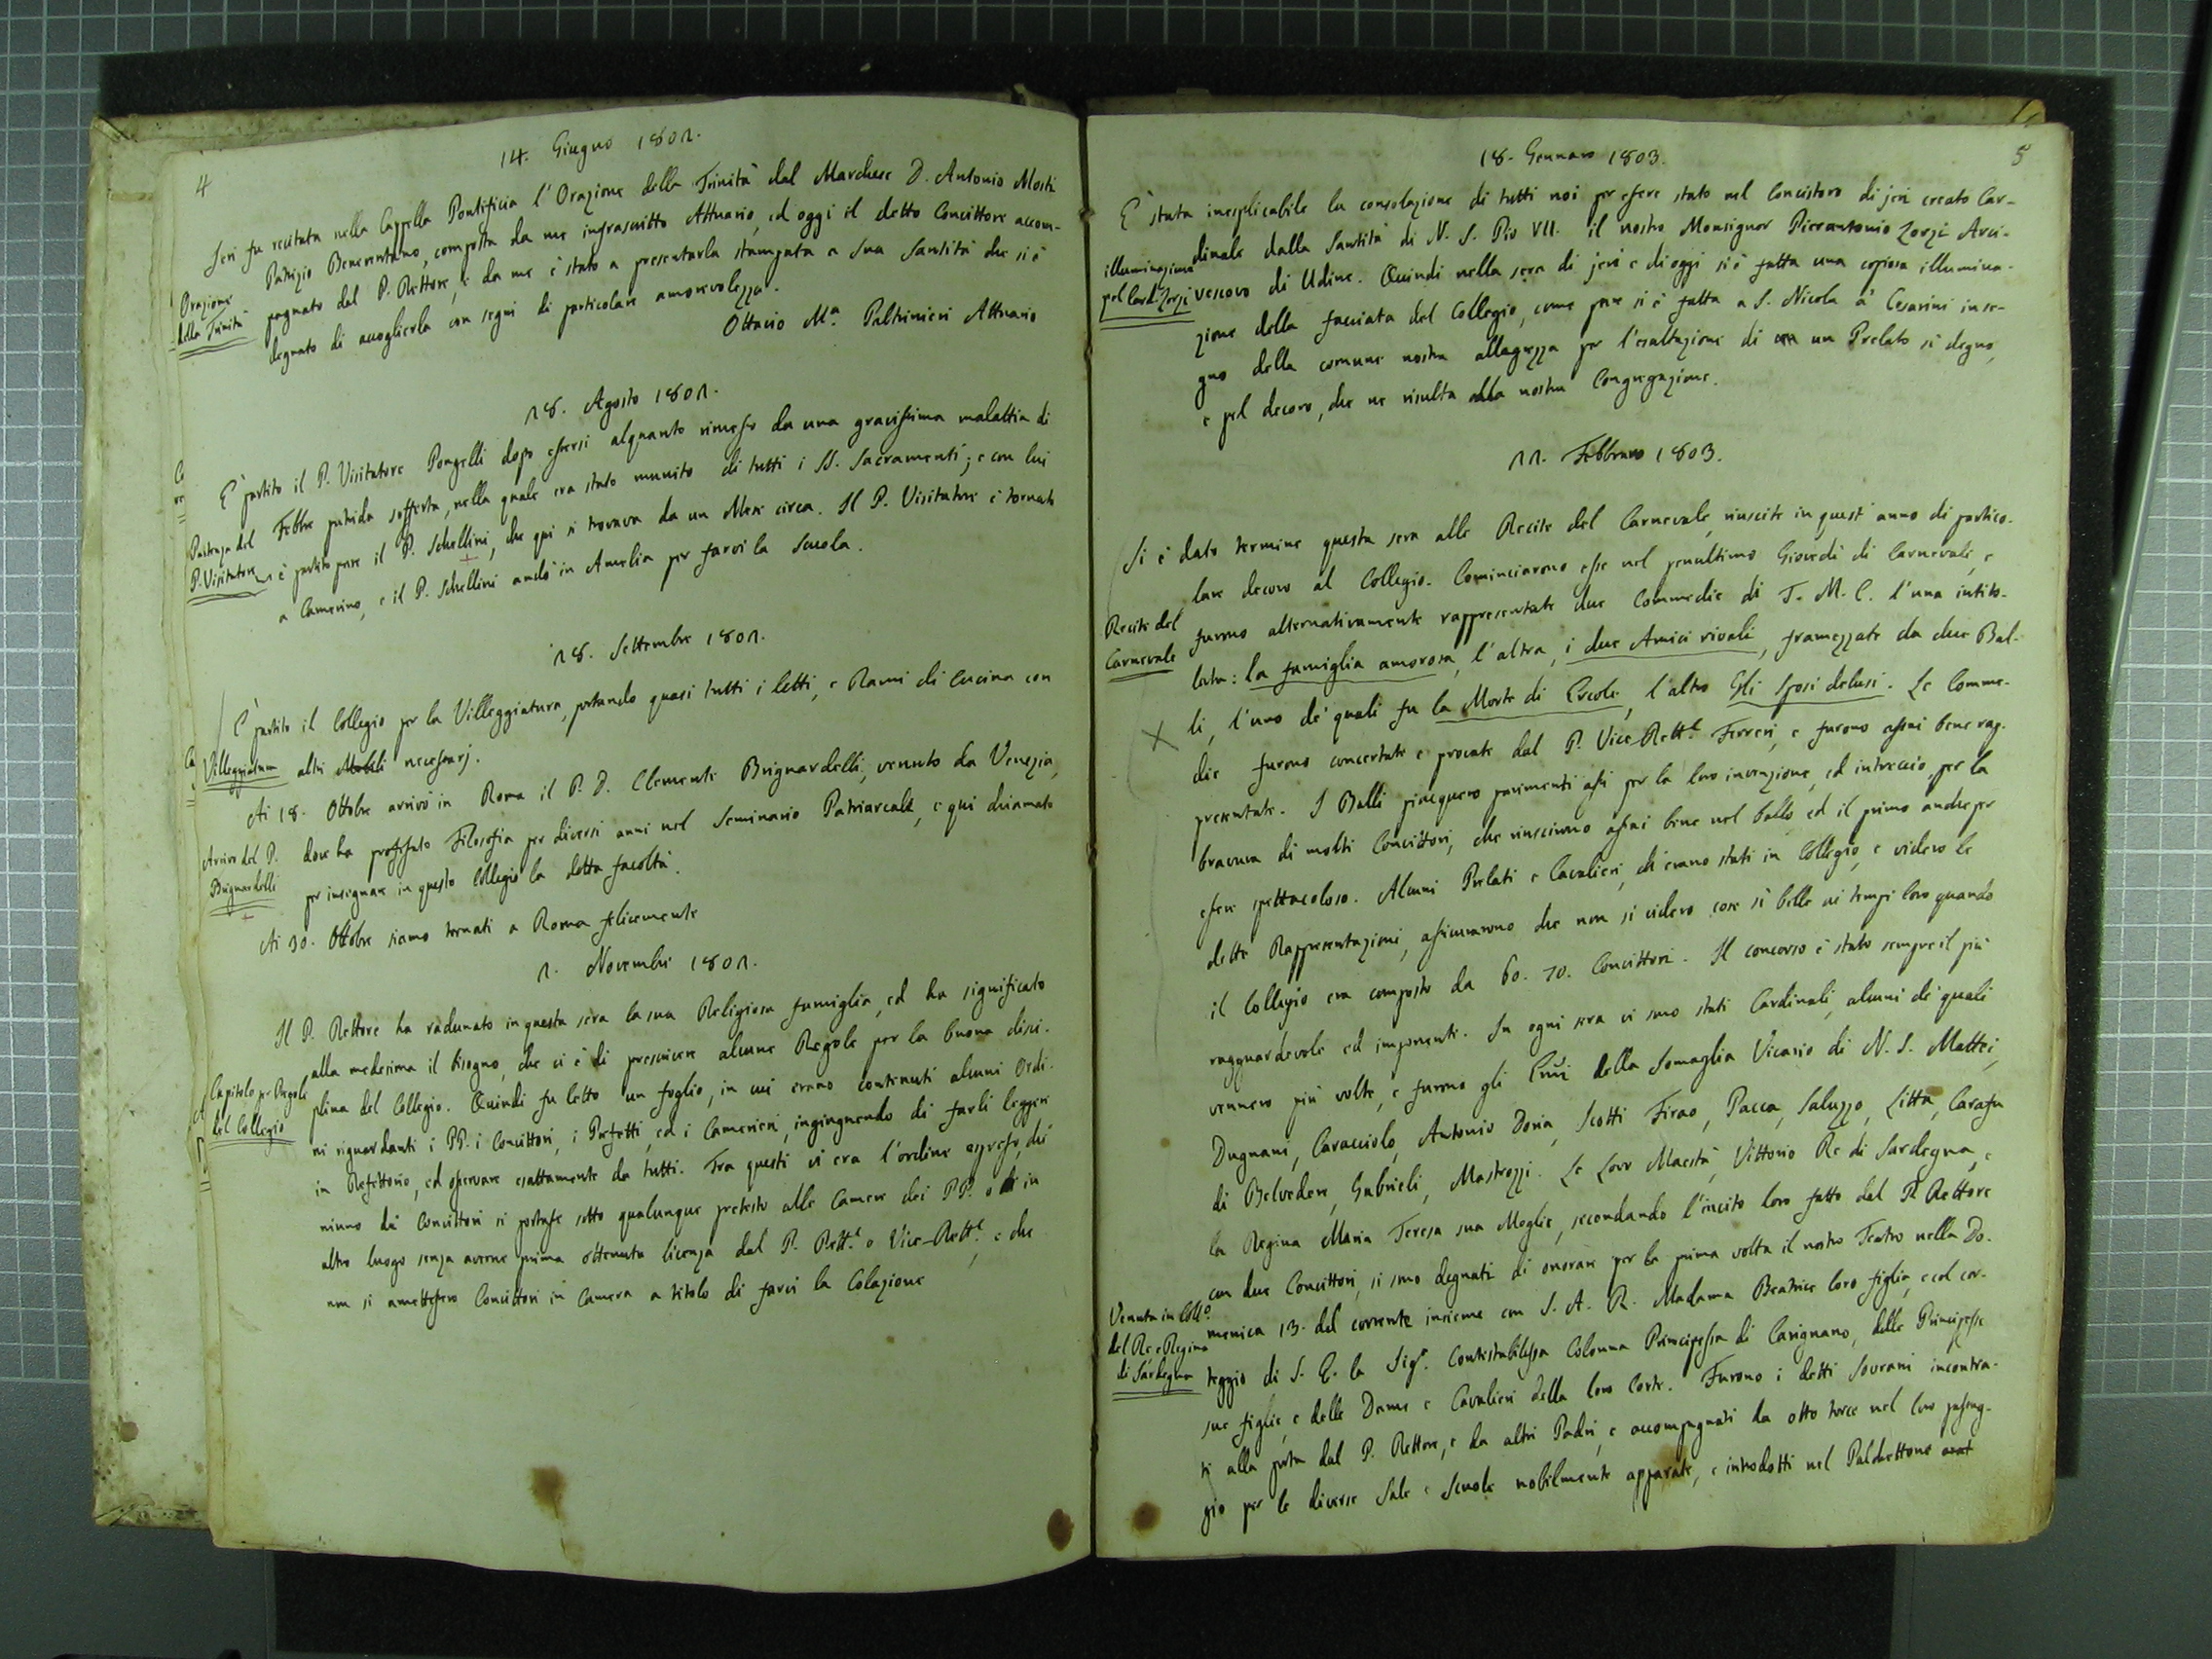 4
14. Giugno 1802.
Jeri fu recitata nella Cappella Pontificia l'Orazione della Trinità dal Marchese D. Antonio Mosti
Patrizio Beneventano, composta da me infrascritto Attuario, ed oggi il detto Convittore accom-
Orazione
della Trinità
pagnato dal P. Rettore, e da me è stato a presentarla stampata a Sua Santità che si è
degnato di accoglierla con segni di particolare amorevolezza.
Ottavio M.a Paltrinieri Attuario
28. Agosto 1802.
È partito il P. Visitatore Pongelli dopo essersi alquanto rimesso da una gravissima malattia di
Febbre putrida sofferta, nella quale era stato munito di tutti i SS. Sacramenti; e con lui
Partenza del
P. Visitatore
è partito pure il P. Schellini, che qui si trovava da un Mese circa. Il P. Visitatore è tornato
a Camerino, e il P. Schellini andò in Amelia per farvi la Scuola.
28. Settembre 1802.
È partito il Collegio per la Villeggiatura, portando quasi tutti i letti, e Rami di Cucina con
Villeggiatura
altri Mobili necessarj.
Ai 18. Ottobre arrivò in Roma il P. D. Clemente Brignardelli, venuto da Venezia,
Arrivo del P.
Brignardelli
dove ha professato Filosofia per diversi anni nel Seminario Patriarcale, e qui chiamato
per insegnare in questo Collegio la detta facoltà.
Ai 30. Ottobre siamo tornati a Roma felicemente
2. Novembre 1802.
Il P. Rettore ha radunato in questa sera la sua Religiosa famiglia, ed ha significato
alla medesima il bisogno, che vi è di prescrivere alcune Regole per la buona disci-
Capitolo pr Regole
del Collegio
plina del Collegio. Quindi fu letto un foglio, in cui erano contenuti alcuni Ordi-
ni riguardanti i PP. i Convittori, i Prefetti, ed i Camerieri, ingiugnendo di farli leggere
in Refettorio, ed osservare esattamente da tutti. Tra questi vi era l'ordine espresso, che
niuno de' Convittori si portasse sotto qualunque pretesto alle Camere dei PP. o in
altro luogo senza averne prima ottenuta licenza dal P. Rett.e o Vice-Rett.e, e che
non si amettessero Convittori in Camera a titolo di farvi la Colazione
5
18. Gennaro 1803.
È stata inesplicabile la consolazione di tutti noi per essere stato nel Concistoro di jeri creato Car-
dinale dalla Santità di N. S. Pio VII. il nostro Monsignor Pierantonio Zorzi Arci-
illuminazione
pel Card. Zorzi
vescovo di Udine. Quindi nella sera di jeri e di oggi si è fatta una copiosa illumina-
zione della facciata del Collegio, come pure si è fatta a S. Nicola a' Cesarini in se-
gno della comune nostra allegrezza per l'esaltazione di un Prelato sì degno,
e pel decoro, che ne risulta alla nostra Congregazione.
22. Febbraro 1803.
Si è dato termine questa sera alle Recite del Carnevale, riuscite in quest'anno di partico-
lare decoro al Collegio. Cominciarono esse nel penultimo Giovedì di Carnevale, e
Recite del
Carnevale
furono alternativamente rappresentate due Commedie di T. M. C. l'una intito-
lata: la famiglia amorosa, l'altra, i due Amici rivali, framezzate da due Bal-
li, l'uno de' quali fu la Morte di Ercole, l'altro Gli Sposi delusi. Le Comme-
die furono concertate e provate dal P. Vice-Rett.e Ferreri, e furono assai bene rap-
presentate. I Balli piacquero parimenti assai per la loro invenzione, ed intreccio, per la
bravura di molti Convittori, che riuscirono assai bene nel ballo, ed il primo anche per
essere spettacoloso. Alcuni Prelati e Cavalieri, ch'erano stati in Collegio, e videro le
dette Rappresentazioni, assicurarono che non si videro cose sì belle ai tempi loro quando
il Collegio era composto da 60. 70. Convittori. Il concorso è stato sempre il più
ragguardevole ed imponente. In ogni sera vi sono stati Cardinali, alcuni de' quali
vennero più volte, e furono gli Emi della Somaglia Vicario di N. S. Mattei,
Dugnani, Caracciolo, Antonio Doria, Scotti Firao, Pacca, Saluzzo, Litta, Carafa
di Belvedere, Gabrieli, Mastrozzi. Le Loro Maestà, Vittorio Re di Sardegna, e
la Regina Maria Teresa sua Moglie, secondando l'invito loro fatto dal P. Rettore
con due Convittori, si sono degnati di onorare per la prima volta il nostro Teatro nella Do-
Venuta in Coll.o
del Re e Regina
di Sardegna
menica 13. del corrente insieme con S. A. R. Madama Beatrice loro figlia, e col cor-
teggio di S. E. la Sig.a Contestabilessa Colonna Principessa di Carignano, delle Principesse
sue figlie, e delle Dame e Cavalieri della loro Corte. Furono i detti Sovrani incontra-
ti alla porta dal P. Rettore, e da altri Padri, e accompagnati da otto torce nel loro passag-
gio per le diverse Sale e Scuole nobilmente apparate, e introdotti nel Palchettone